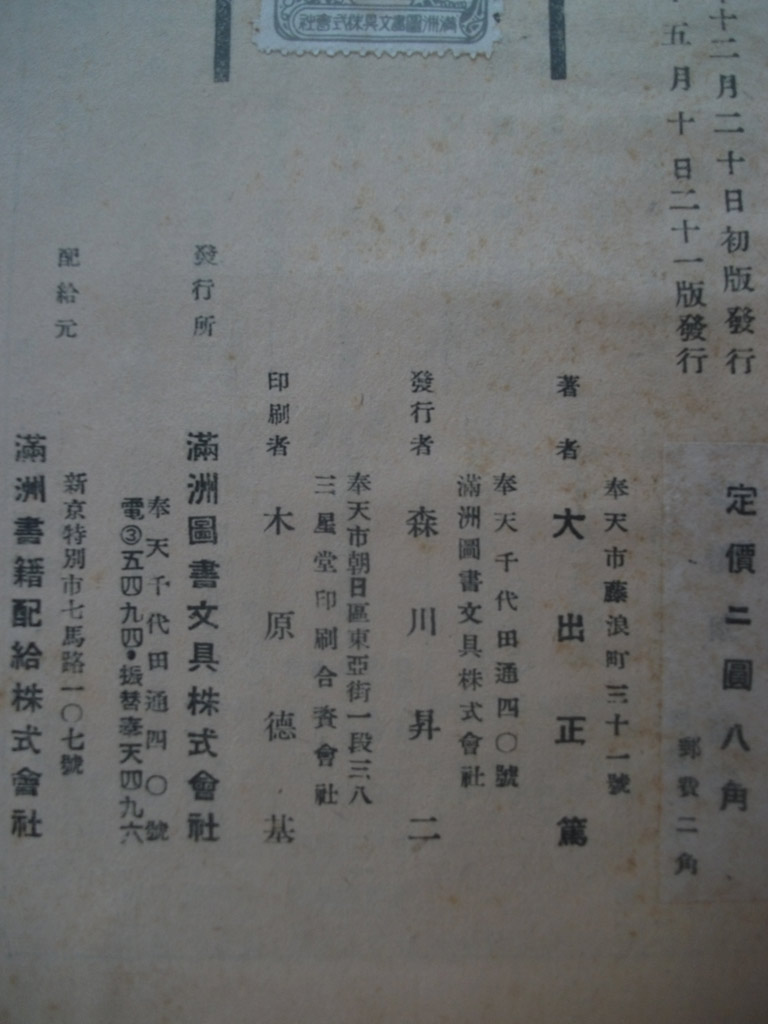 十二月二十日初版發行
五月十日二十一版發行
定價二圓八角
郵費二角
奉天市藤浪町三十一號
著者 大出正篤
奉天千代田通四〇號
滿洲圖書文具株式會社
發行者 森川昇二
奉天市朝日區東亞街一段三八
三星堂印刷合資會社
印刷者 木原德基
發行所 滿洲圖書文具株式會社
奉天千代田通四〇號
電③五四九四・振替奉天四四九六
配給元
新京特別市七馬路一〇七號
滿洲書籍配給株式會社
滿洲圖書文具株式會社